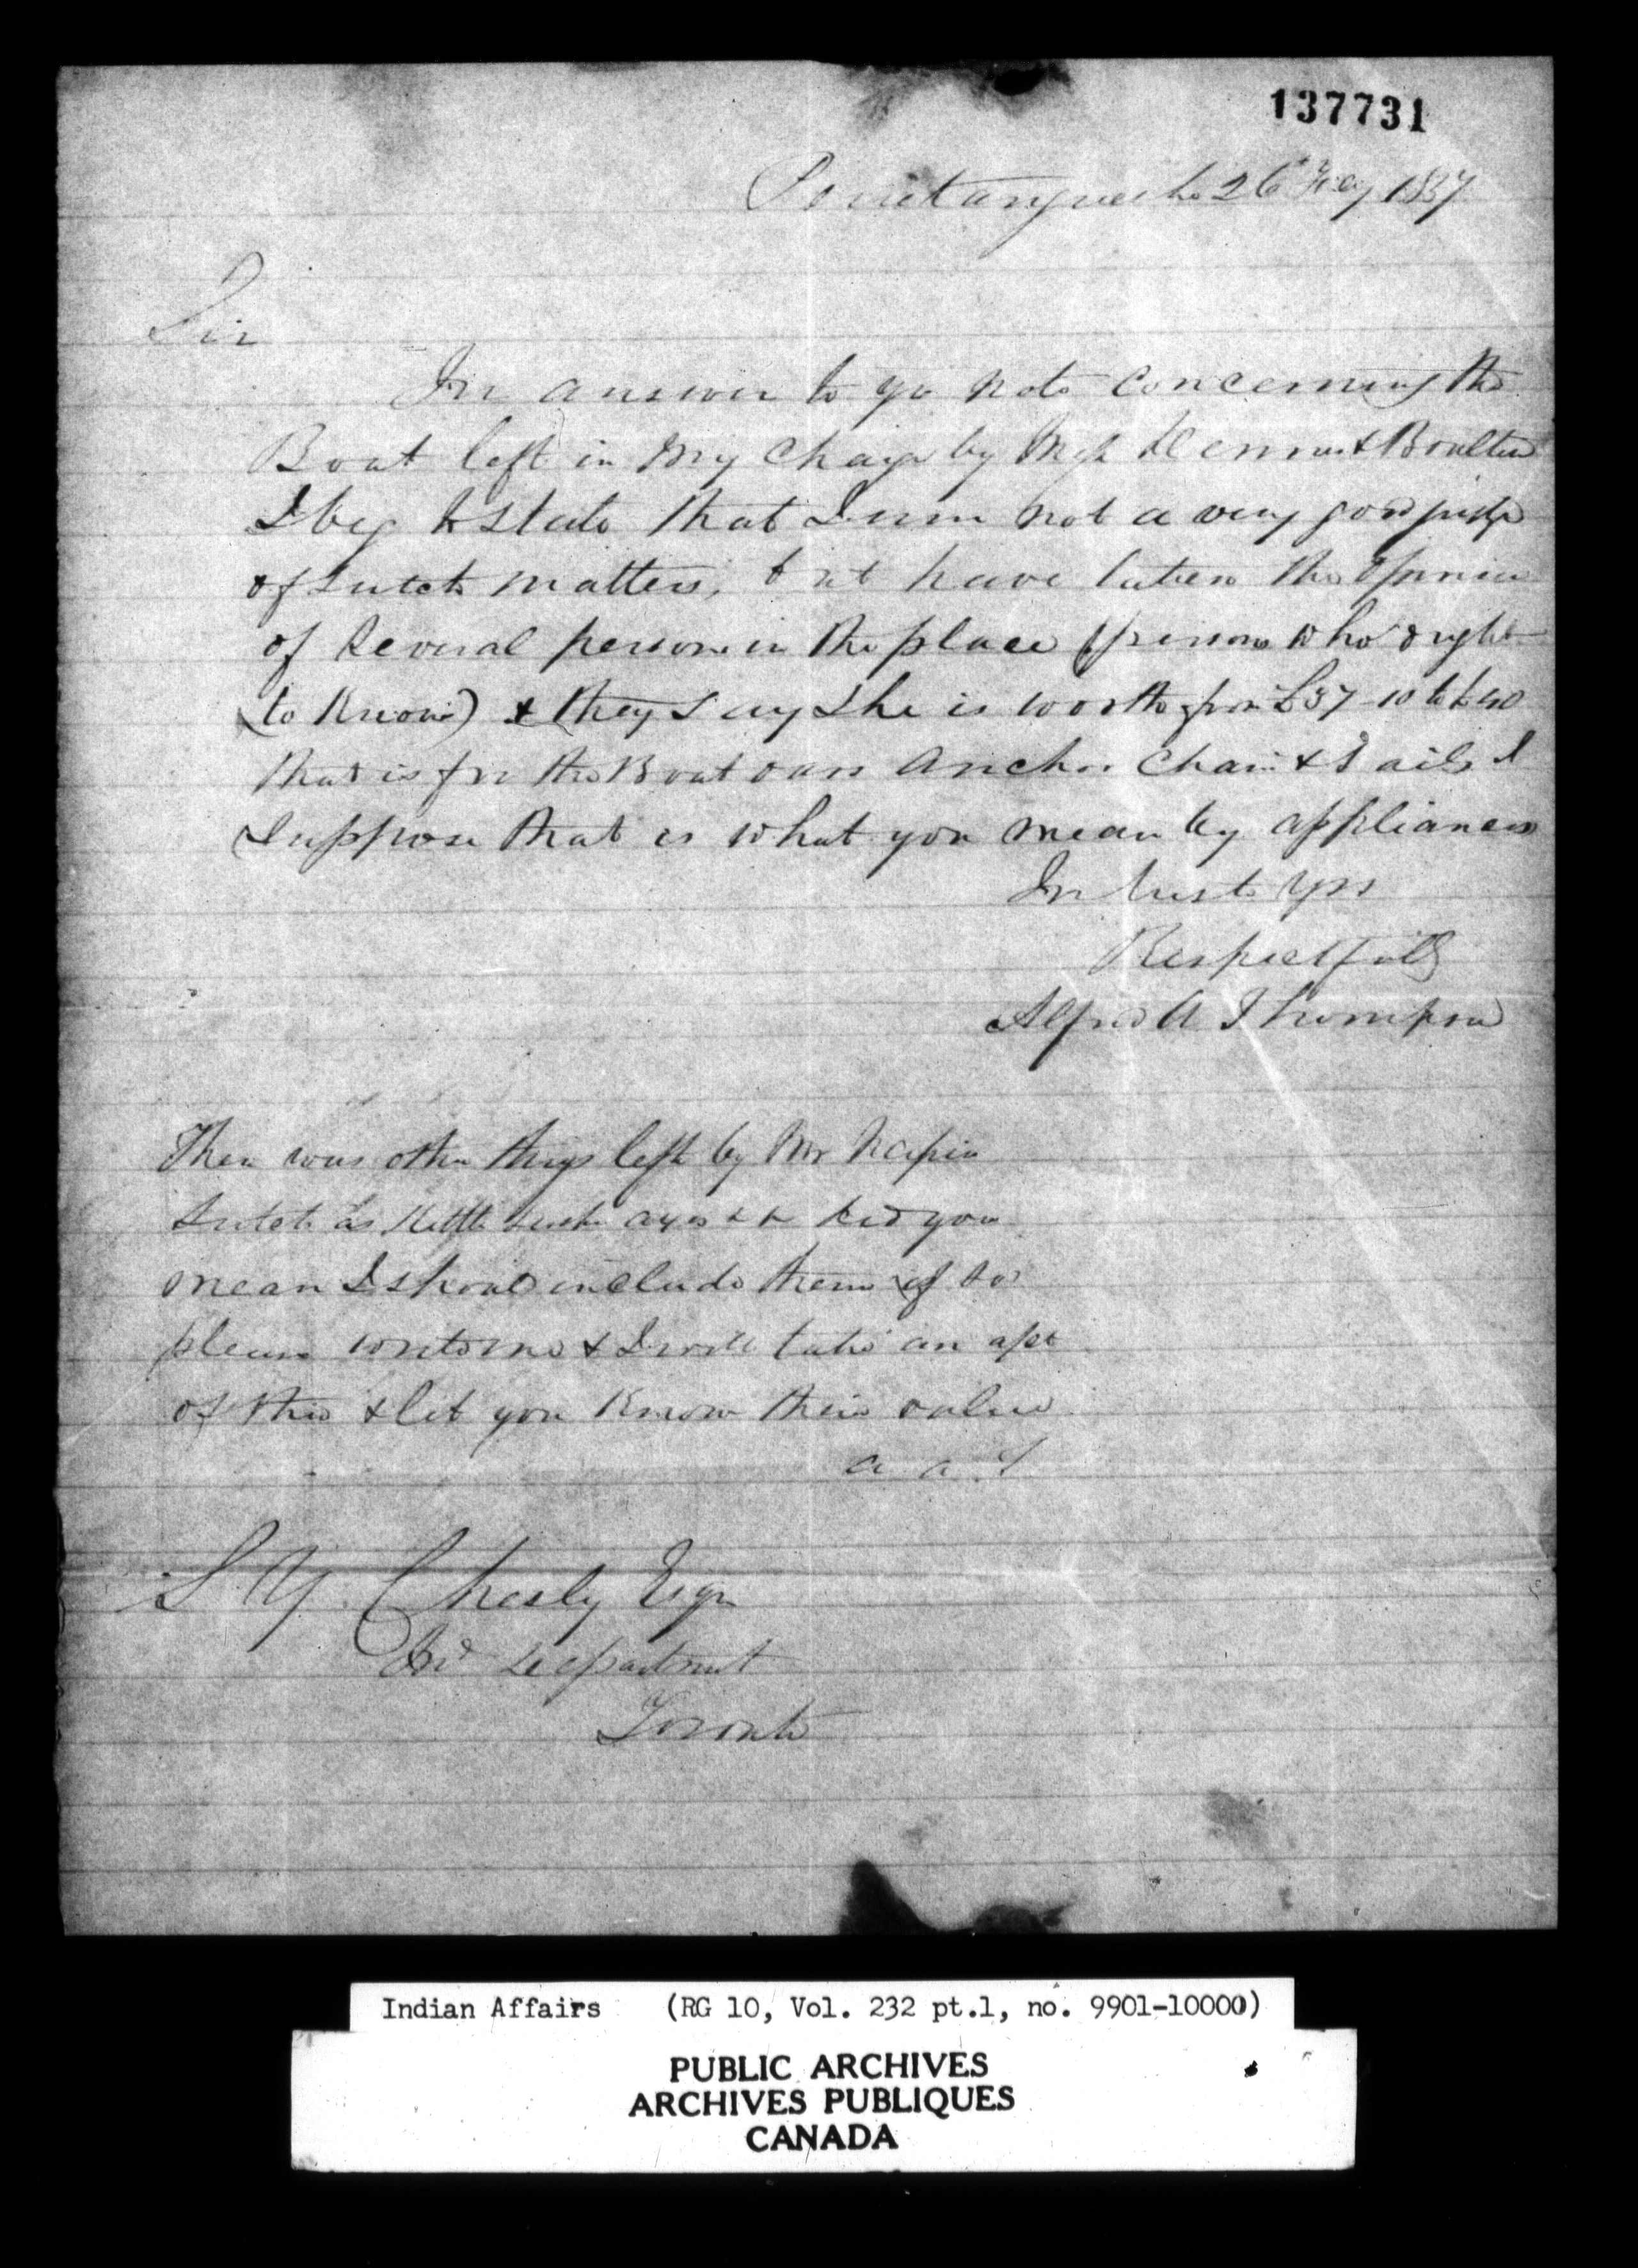 137731
Penetanguishe 26th Feby 1857
Sir
In answer to yr note concerning the
Boat left in my Charge by Messrs Dennis & Boulton
I beg to state that I am not a very good judge
of sutch matters, but have taken the opinion
of several persons in the place (persons who ought
(to Know) & they say she is worth from £37-10 to £40
that is for the Boat oars Anchor Chain & Sails I
Suppose that is what you mean by appliances
In haste Yrs
Respectfully
Alfred A Thompson
Ther was other things left by Mr Napier
Sutch as Kettle axes &c did you
mean I should include them if so
please write me & I will take an apt
of this & let you Know their value
A A T
S. Y. Chesly Esqr
Ind Department
Toronto
Indian Affairs (RG 10, Vol. 232 pt.1, no. 9901-10000)
PUBLIC ARCHIVES
ARCHIVES PUBLIQUES
CANADA